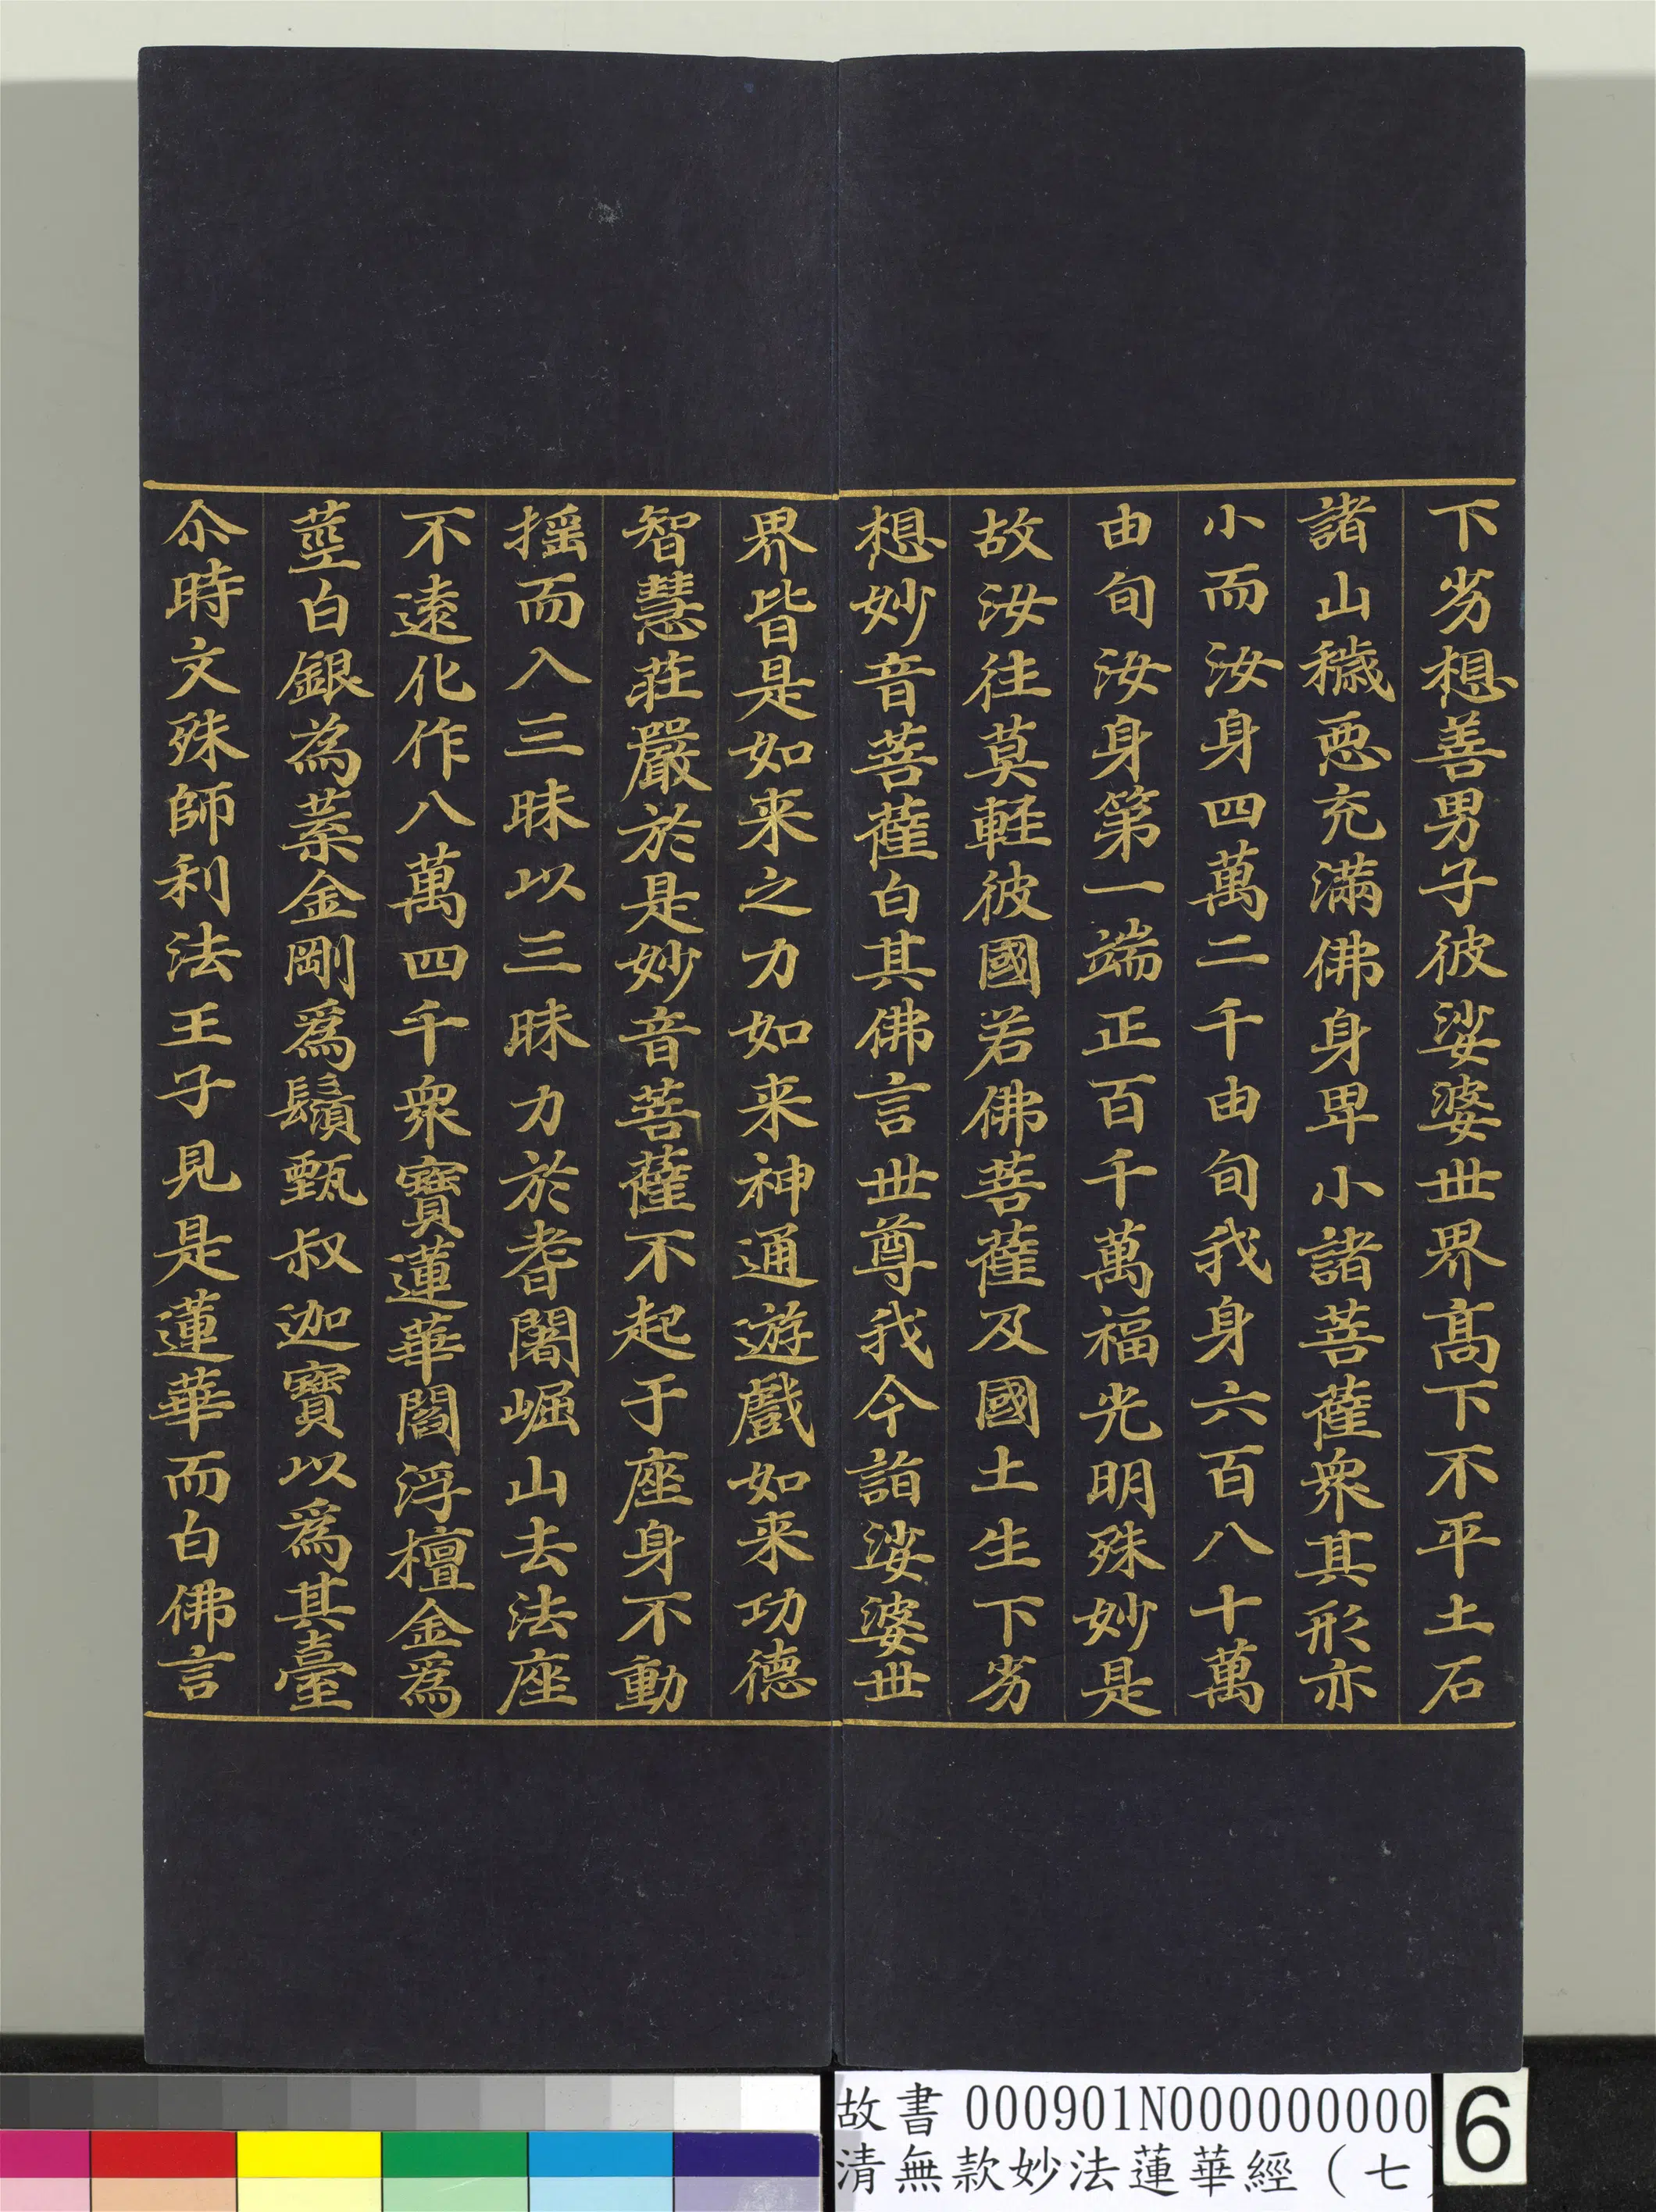 下劣想善男子彼娑婆世界髙下不平土石
諸山穢惡充滿佛身卑小諸菩薩衆其形亦
小而汝身四萬二千由旬我身六百八十萬
由旬汝身第一端正百千萬福光明殊妙是
故汝往莫輕彼國若佛菩薩及國土生下劣
想妙音菩薩白其佛言世尊我今詣娑婆世
界皆是如来之力如来神通遊戲如来功德
智慧莊嚴於是妙音菩薩不起于座身不動
搖而入三昧以三昧力於耆闍崛山去法座
不遠化作八萬四千衆寶蓮華閻浮檀金爲
莖白銀為葉金剛爲鬚甄叔迦寶以爲其臺
尒時文殊師利法王子見是蓮華而白佛言
故書 000901N000000000
清無款妙法蓮華經（七
6